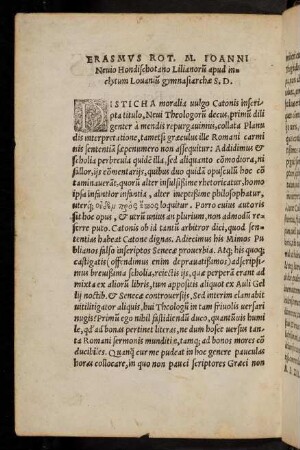 ERASMVS ROT. M. IOANNI
Neuio Hondischotano Lilianorũ apud in-
clytum Louaniũ gymnasiarchæ S. D.
DISTICHA moralia uulgo Catonis inscri-
pta titulo, Neui Theologorũ decus, primũ dili
genter à mendis repurgauimus, collata Planu
dis interpretatione, tametsi græculus ille Romani carmi
nis sententiã sæpenumero non assequitur; Addidimus &
scholia perbreuia quidẽ illa, sed aliquanto cõmodiora, ni
fallor, ijs cõmentarijs, quibus duo quidã opusculũ hoc cõ
taminauerãt, quorũ alter insulsissime rhetoricatur, homo
ipsa infantior infantia, alter ineptissime philosophatur,
uterq; οὐδὲν πρὸς ἔπος loquitur. Porro cuius autoris
sit hoc opus, & utrũ unius an plurium, non admodũ re-
ferre puto. Catonis ob id tantũ arbitror dici, quod sen-
tentias habeat Catone dignas. Adiecimus his Mimos Pu
blianos falso inscriptos Senecæ prouerbia. Atq; his quoq;
castigatis (offendimus enim deprauatissimos) adscripsi-
mus breuissima scholia, reiectis ijs, quæ perperã erant ad
mixta ex aliorũ libris, tum appositis aliquot ex Auli Gel
lij noctib. & Senecæ controuersijs. Sed interim clamabit
uitilitigator aliquis, hui Theologũ in tam friuolis uersari
nugis? Primũ ego nihil fastidiendũ duco, quantũuis humi
le, qd' ad bonas pertinet literas, ne dum hosce uersus tan-
ta Romani sermonis munditia, tamq; ad bonos mores cõ
ducibiles. Quanq̃ cur me pudeat in hoc genere pauculas
horas collocare, in quo non pauci scriptores Græci non